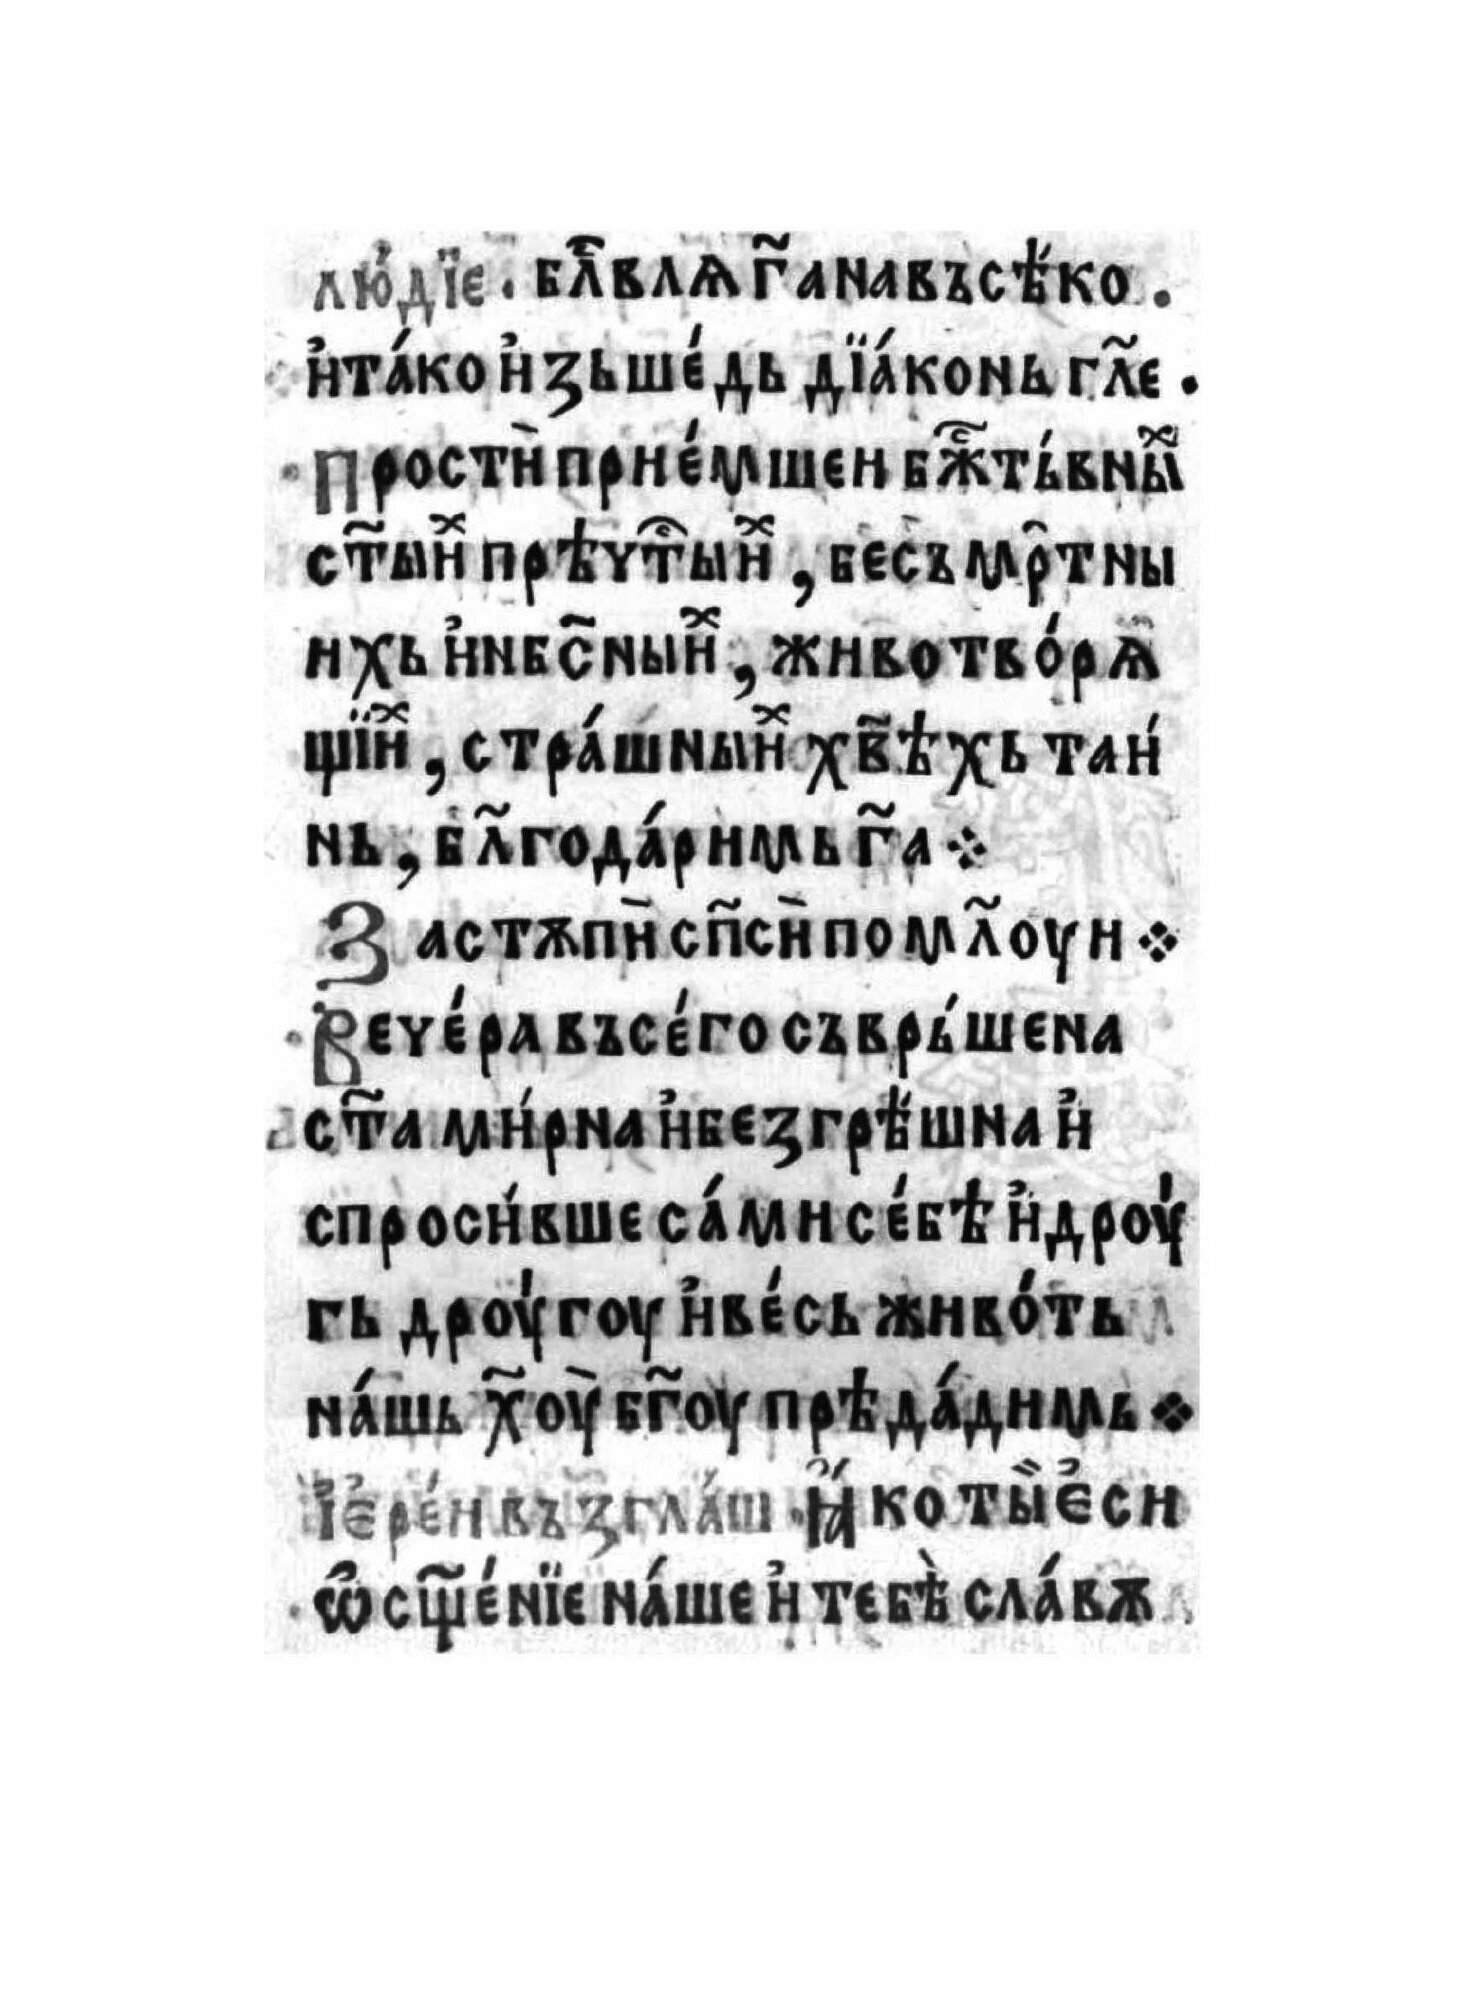 лю҆́дїе . бл҃влѧ г҃а на въсѣ́ко .
и҆ та́ко и҆зьше́дь дїа́конь гл҃е .
Прости̏ прие́мшеи бжⷭ҇ть́вныⷯ
ст҃ыиⷯ прѣꙋтⷭ҇ыиⷯ , бесъмр҃тны
ихь и҆ нбс҃ныиⷯ , животво́рѧ
щїиⷯ , стра́шныиⷯ хв҃ѣхь таи́
нь , бл҃года́римь г҃а ⁘
Застѫпи̏ сп҃си̏ помл҃оуи ⁘
Веѵе́ра въсе́го съврь́шена
ст҃а ми́рна и҆ безгрѣ́шна и҆
спроси́вше са́ми се́бѣ и҆ дроу́
гь дроу́гоу и҆ ве́сь живо́ть
на́шь х҃оу̀ бг҃оу прѣда́димь ⁘
і҆е҆ре́и възгла́ш . Ꙗ҆́ко ты̏ є҆си
ѡ҆сщ҃е́нїе на́ше и҆ тебѣ̀ сла́вѫ